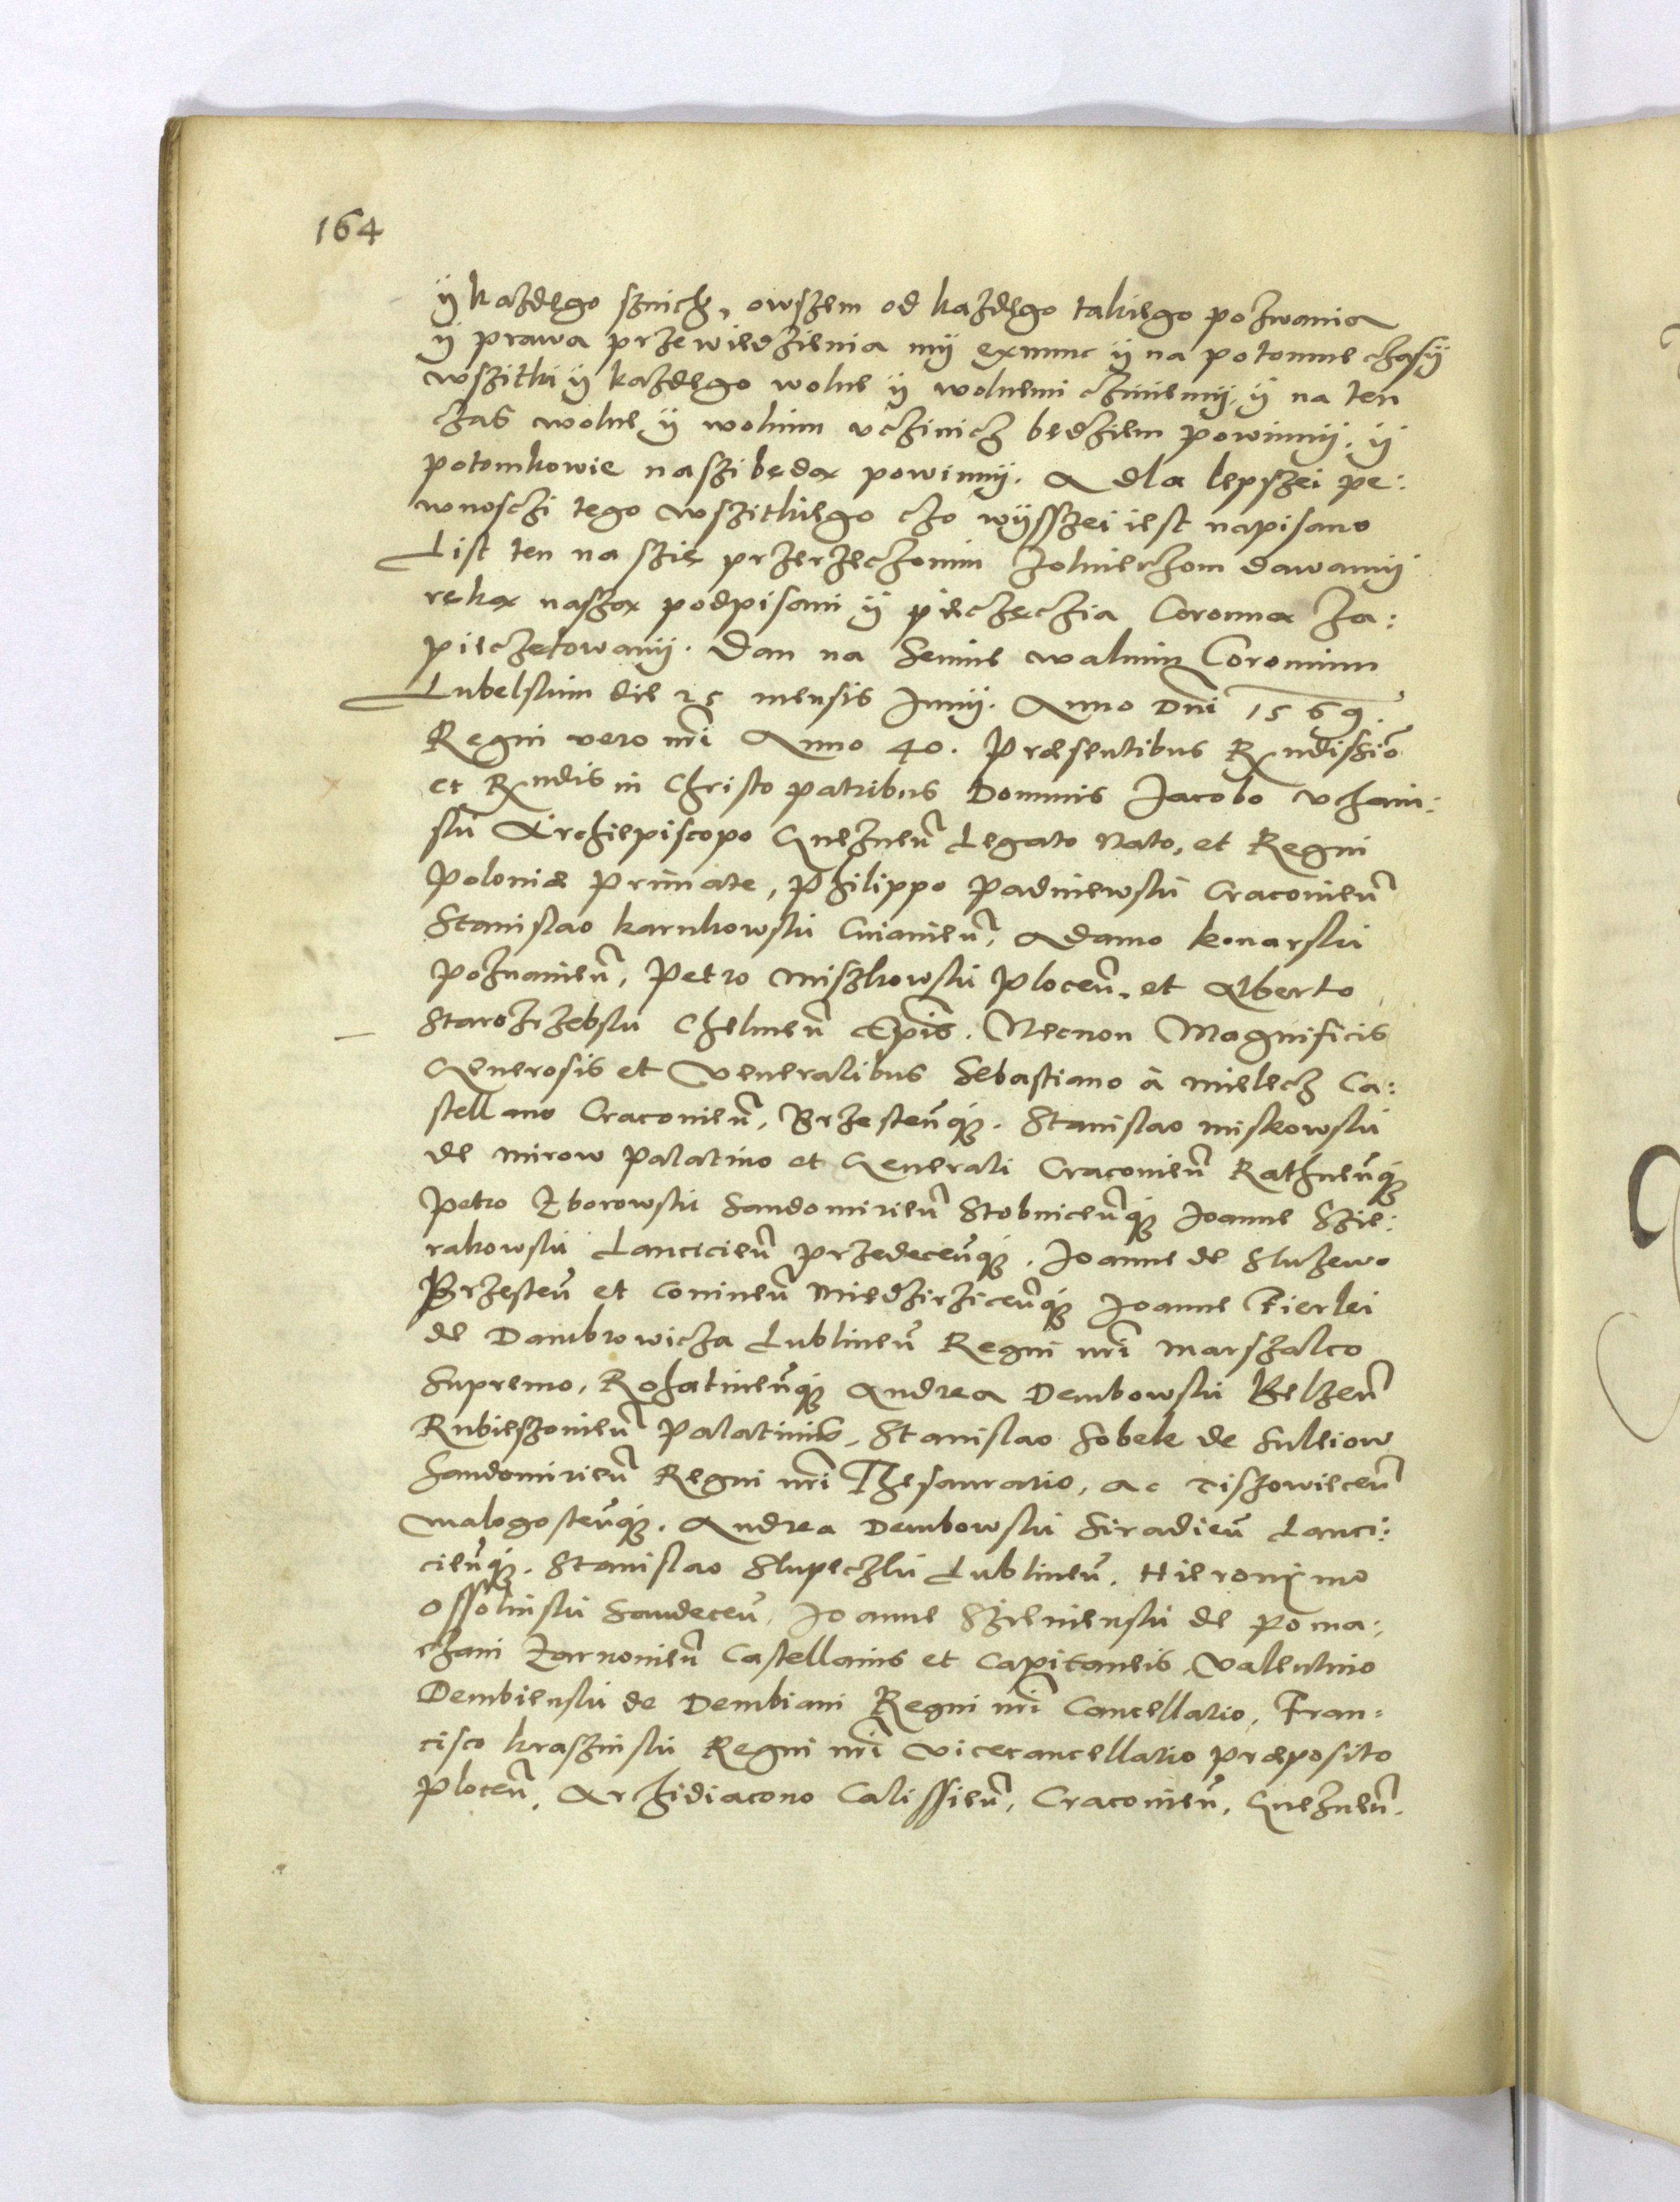 164
ÿ każdego sznich, owszem od każdego takiego pozwania
ÿ prawa przewiedzienia mÿ exnunc ÿ na potomne czasÿ
wszitki ÿ każdego wolne ÿ wolnemi cziniemÿ, ÿ na ten
czas wolne ÿ wolnim vczinicz bedziem powinnÿ. ÿ
potomkowie naszi będą powinnÿ. A dla lepszei pe:
wnosczi tego wszitkiego czo wÿsszei iest napisano
List ten na szię przerzeczonim Zolnierzom dawamÿ
ręką naszą podpisani ÿ pieczęczia Coronną za:
pieczętowanÿ. Dan na Seimie walnim Coronnim
Lubelskim die 25 mensis Junÿ. Anno Dni 1569.
Regni vero nri Anno 40. Præsentibus Rndissio
et Rndis in Christo patribus Dominis Jacobo Vchain:
ski Archiepiscopo Gnezneñ Legato Nato, et Regni
Poloniæ Primate, Philippo Padniewski Cracovieñ
Stanislao Karnkowski Cuiavieñ, Adamo Konarski
Poznanieñ, Petro Miszkowski Ploceñ, et Alberto
Starozrzebski Chelmeñ Epis. Necnon Magnificis
Generosis et Venerabilibus Sebastiano à Mielecz Ca:
stellano Cracovieñ, Brzesteñque. Stanislao Miskowski
de Mirow Palatino et Generali Cracovieñ Rathneñque
Petro Zborowski Sandomirieñ Stobniceñque Joanne Szie:
rakowski Lancicieñ Przedeceñque. Joanne de Sluzewo
Brzesteñ et Conineñ Miedzirziceñque Joanne Fierlei
de Dambrowicza Lublineñ Regni nri Marszalco
Supremo, Rohatineñque Andrea Dembowski Belzeñ
Rubieszovieñ Palatinis, Stanislao Sobek de Suleiow
Sandomirieñ Regni nri Thesaurario, ac Tiszowieceñ
Malogosteñque. Andrea Dembowski Siradieñ Lanci:
cieñque. Stanislao Slupeczki Lublineñ. Hieronimo
Ossolinski Sandeceñ, Joanne Szienienski de Poma:
rzani Zarnovieñ Castellanis et Capitaneis, Valentino
Dembienski de Dembiani Regni nri Cancellario, Fran=
cisco Kraszinski Regni nri Vicecancellario Præposito
Ploceñ, Archidiacono Calissieñ, Cracovieñ, Gnezneñ.